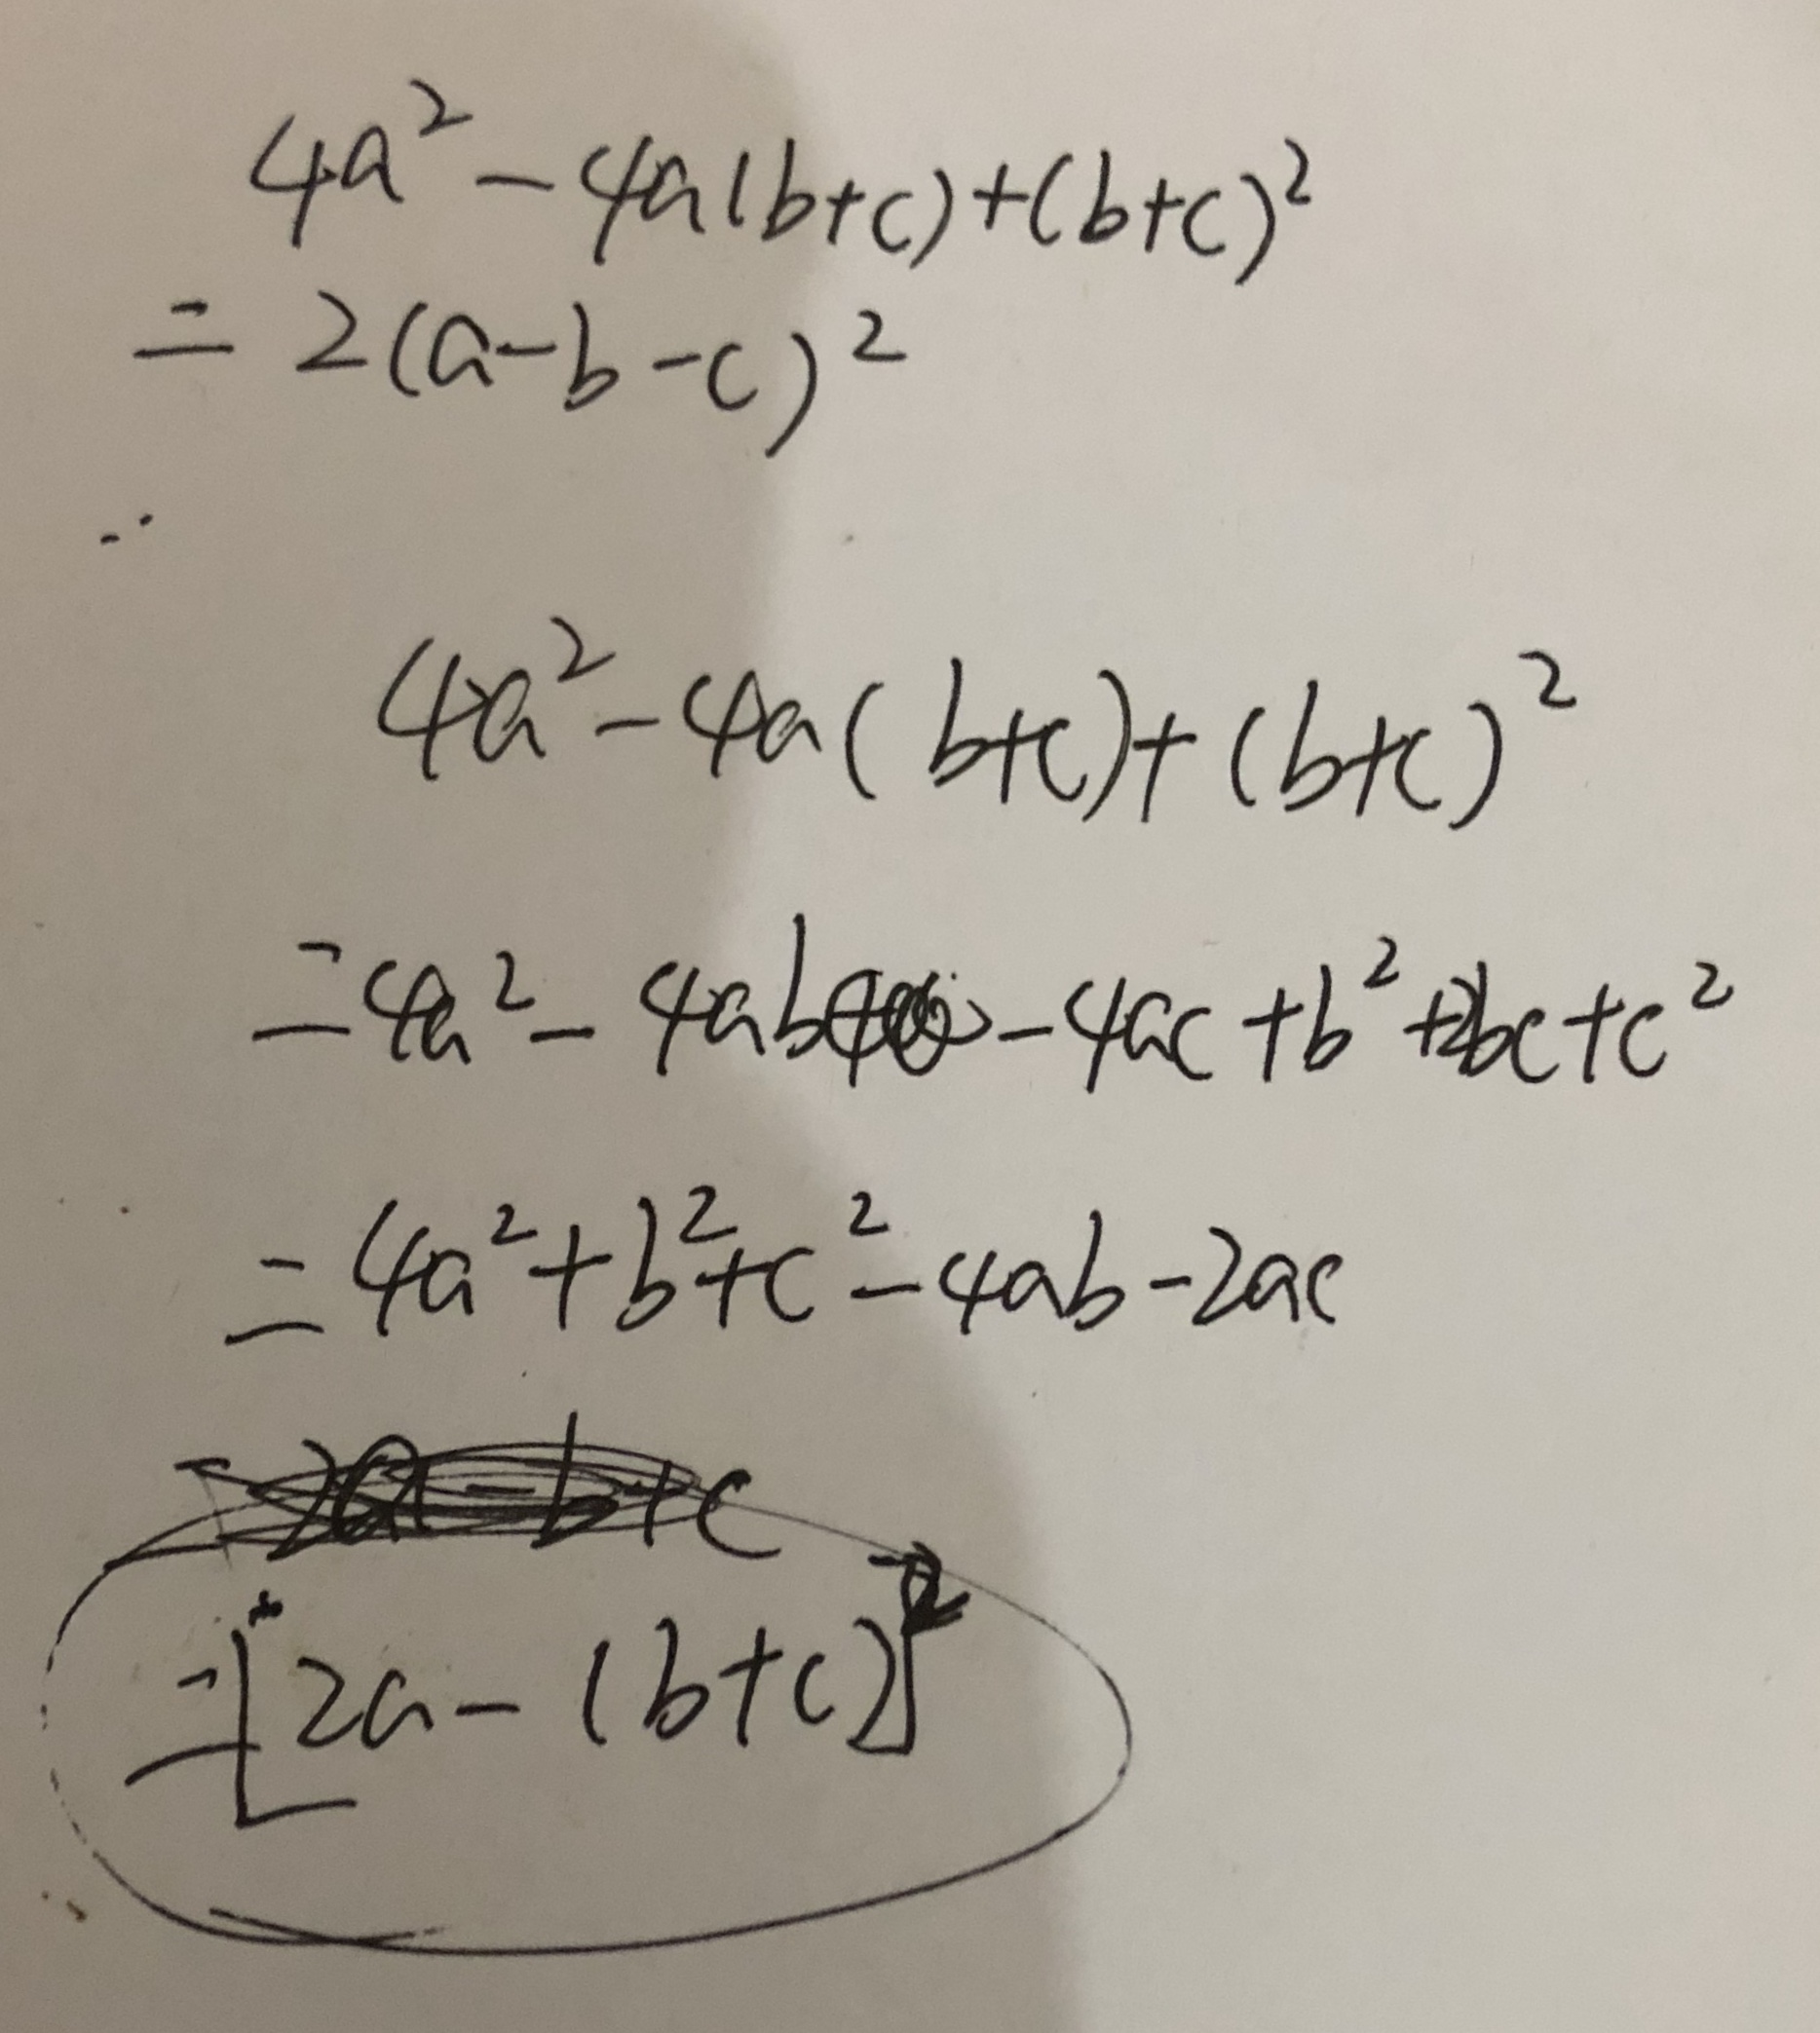 4a² - 4a(b+c)+(b+c)²
= 2(a-b-c)²
4a² - 4a(b+c)+(b+c)²
=4a² - 4ab - 4ac + b² + 2bc + c²
= 4a² + b² + c² - 4ab - 2ac
=[2a - (b+c)]²